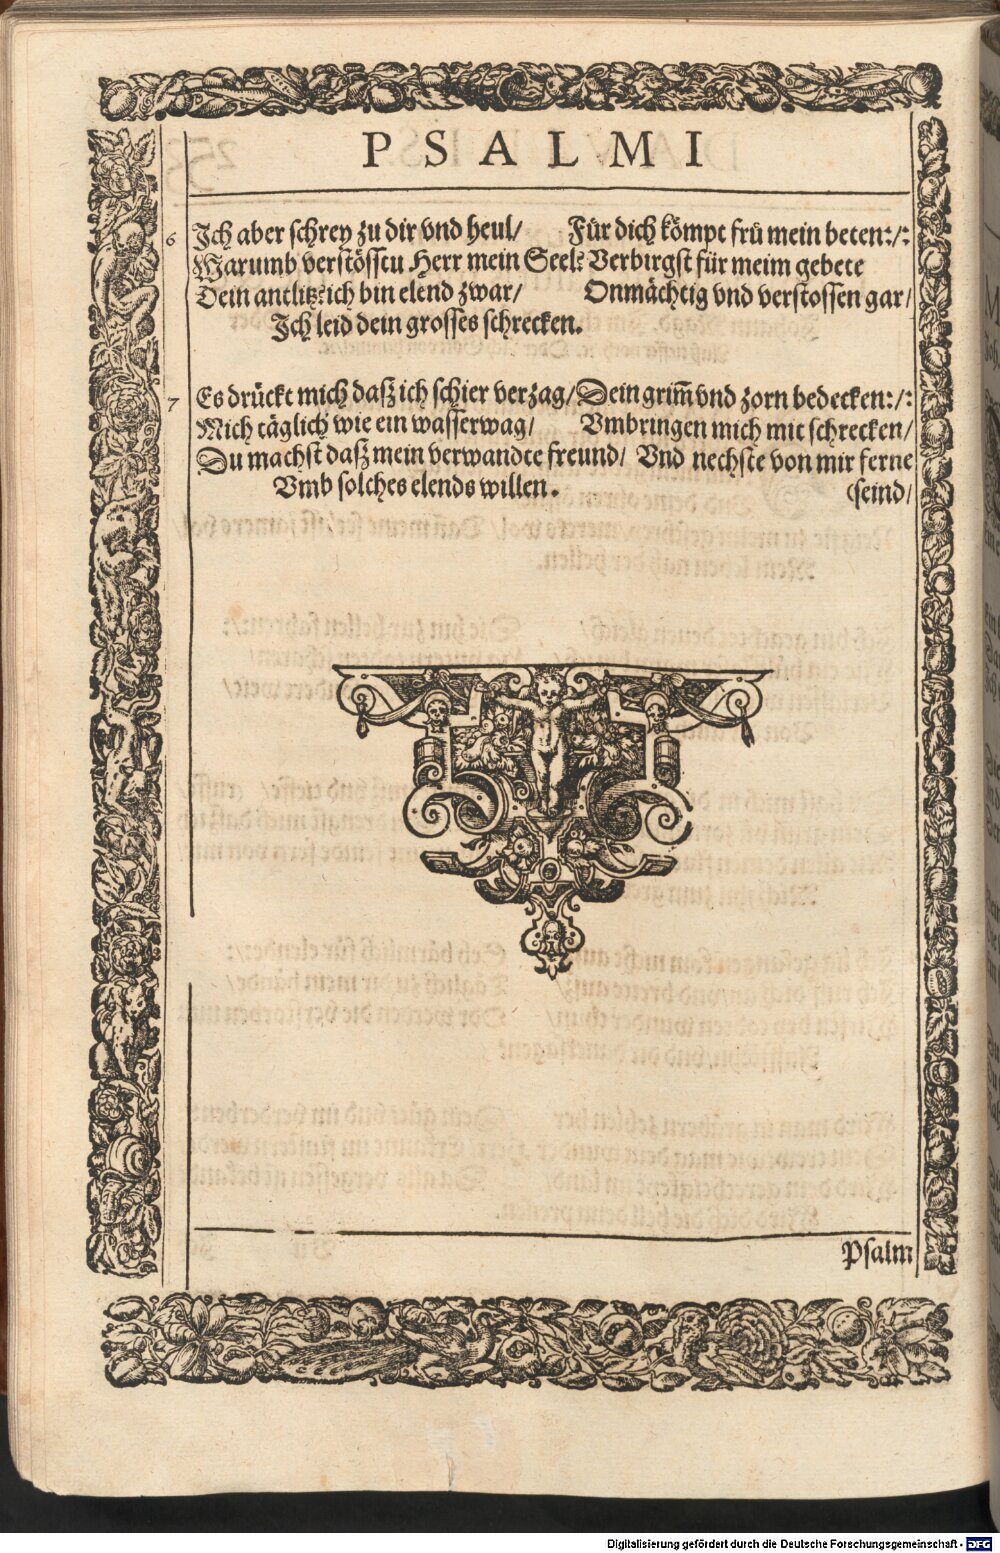 PSALMI
6 Ich aber schrey zu dir vnd heul/ Für dich kömpt frü mein beten:/:
Warumb verstösstu Herr mein Seel? Verbirgst für meim gebete
Dein antlitz? ich bin elend zwar/ Onmächtig vnd verstossen gar/
Ich leid dein grosses schrecken.
7 Es drückt mich daß ich schier verzag/ Dein grim̃ vnd zorn bedecken:/:
Mich täglich wie ein wasserwag/ Vmbringen mich mit schrecken/
Du machst daß mein verwandte freund/ Vnd nechste von mir ferne
Vmb solches elends willen. (seind/
Psalm
Digitalisierung gefördert durch die Deutsche Forschungsgemeinschaft - DFG